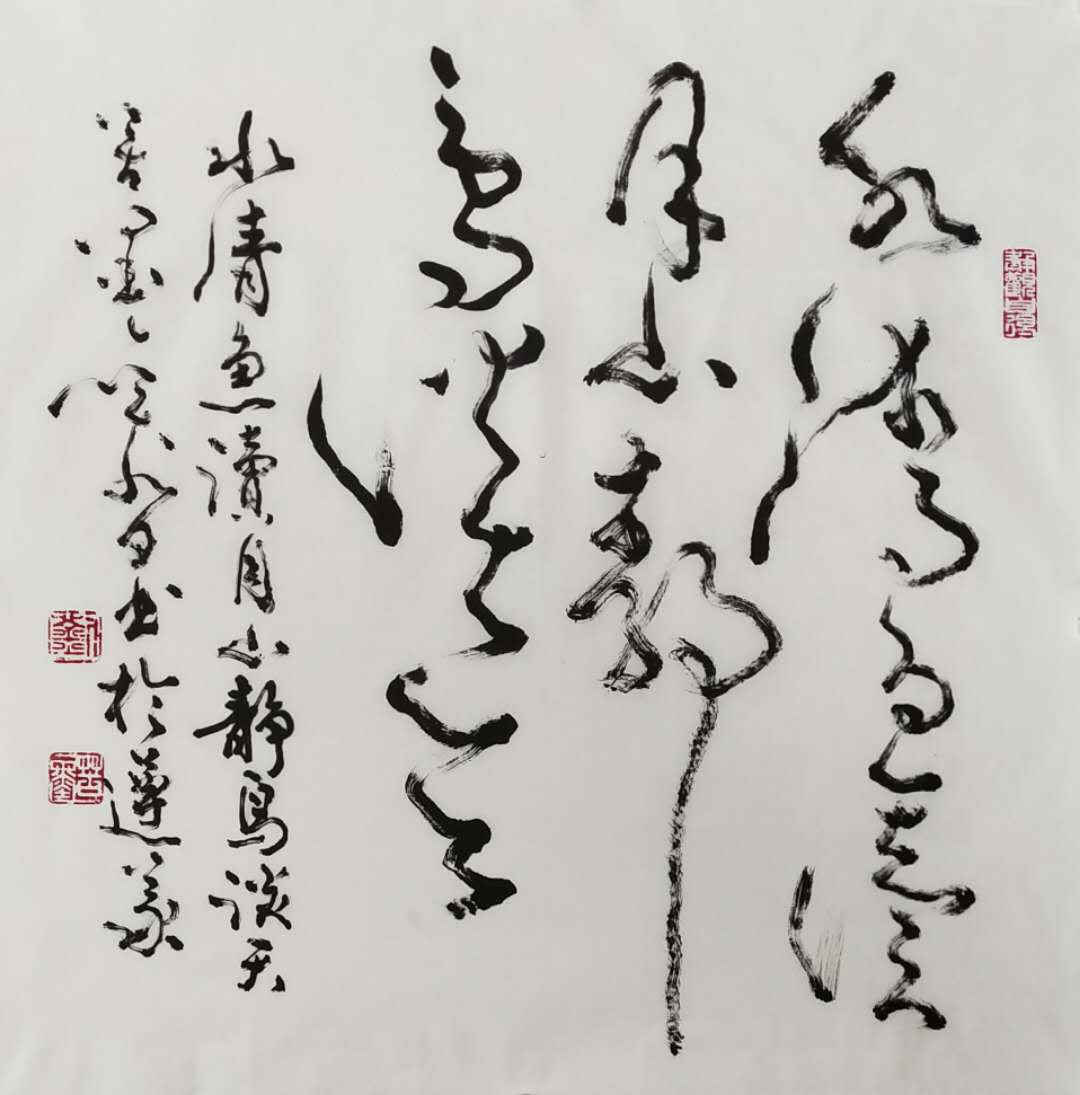 水清魚讀
月山靜
鳥談天
水清魚讀月山靜鳥談天
書於遵義